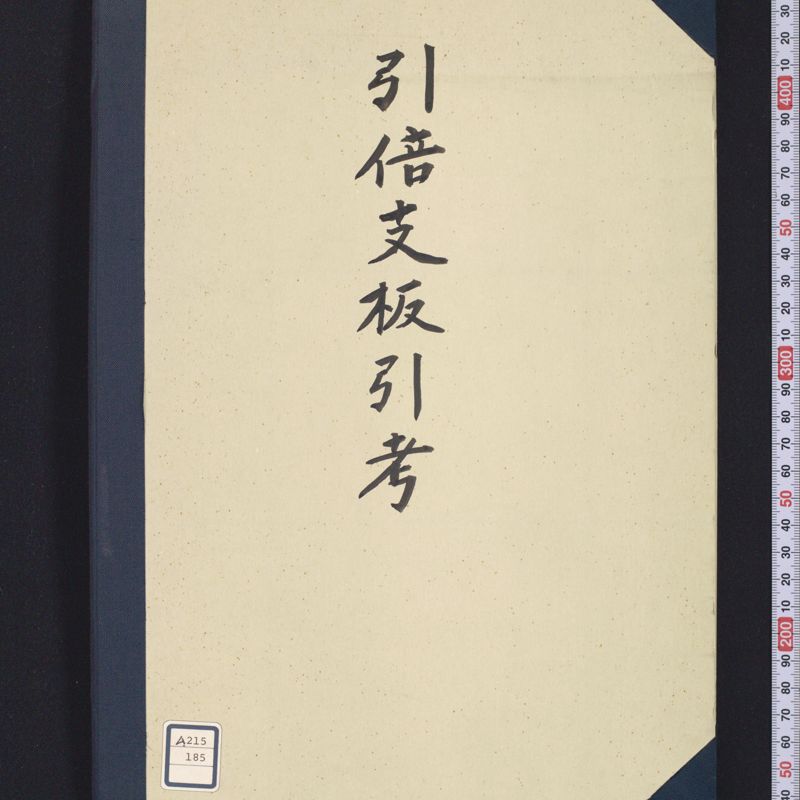 引倍支板引考
A215
185
30
20
10
400
90
80
70
60
50
40
30
20
10
300
90
80
70
60
50
40
30
20
10
200
90
80
70
60
50
40